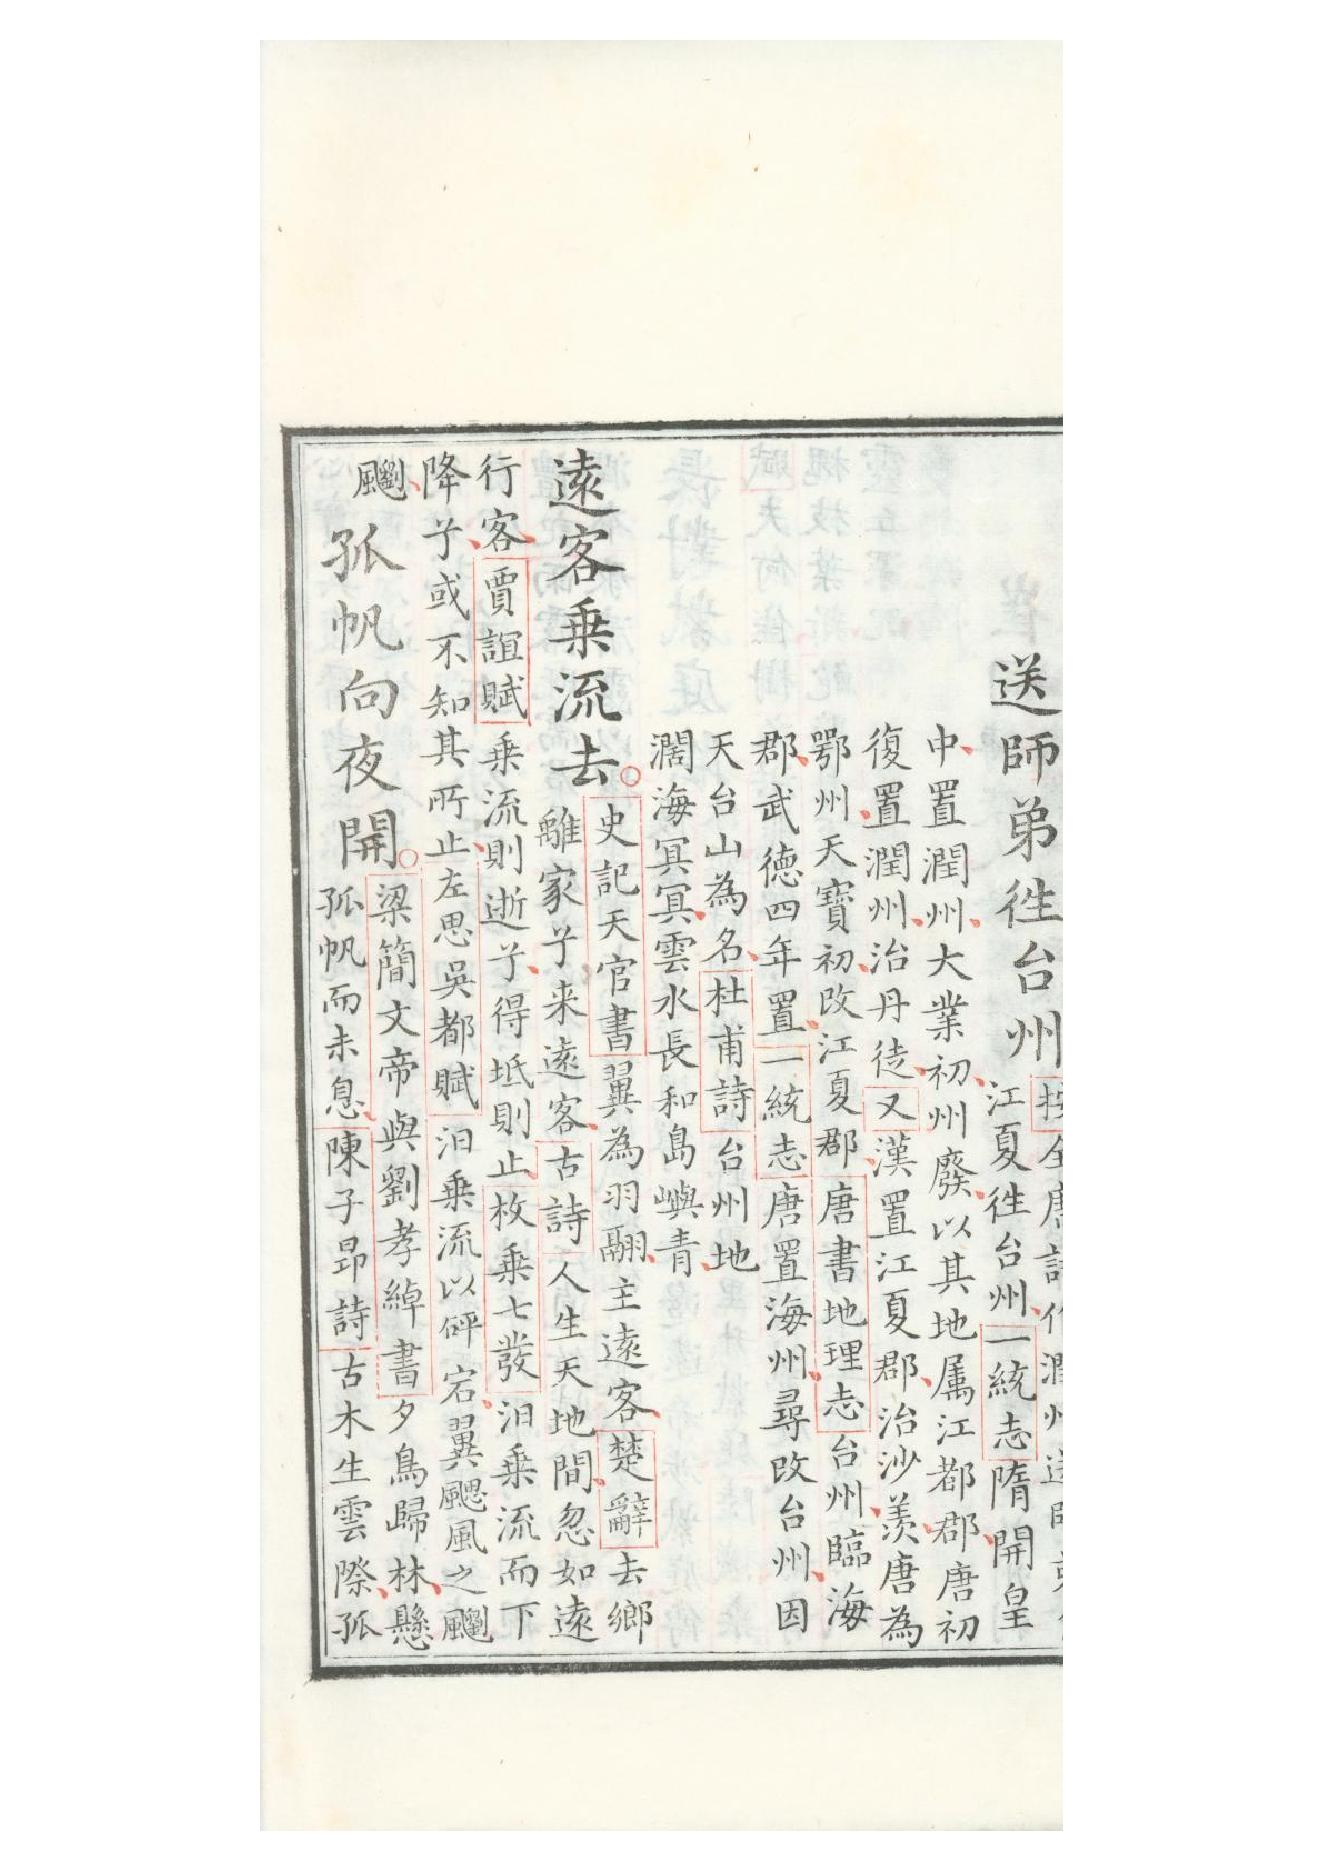 送師弟徃台州
按全唐詩作潤州送師弟
江夏徃台州一統志隋開皇
中置潤州大業初州廢以其地属江都郡唐初
復置潤州治丹徒又漢置江夏郡治沙羨唐為
鄂州天寶初改江夏郡唐書地理志台州臨海
郡武德四年置一統志唐置海州尋改台州因
天台山為名杜甫詩台州地
濶海冥冥雲水長和島嶼青
遠客乗流去
史記天官書翼為羽翮主遠客楚辭去鄉
離家兮来遠客古詩人生天地間忽如遠
行客賈誼賦乗流則逝兮得坻則止枚乗七發汨乗流而下
降兮或不知其所止左思吳都賦汨乗流以砰宕翼颸風之飀
飀
孤帆向夜開
梁簡文帝與劉孝綽書夕鳥歸林懸
孤帆而未息陳子昂詩古木生雲際孤